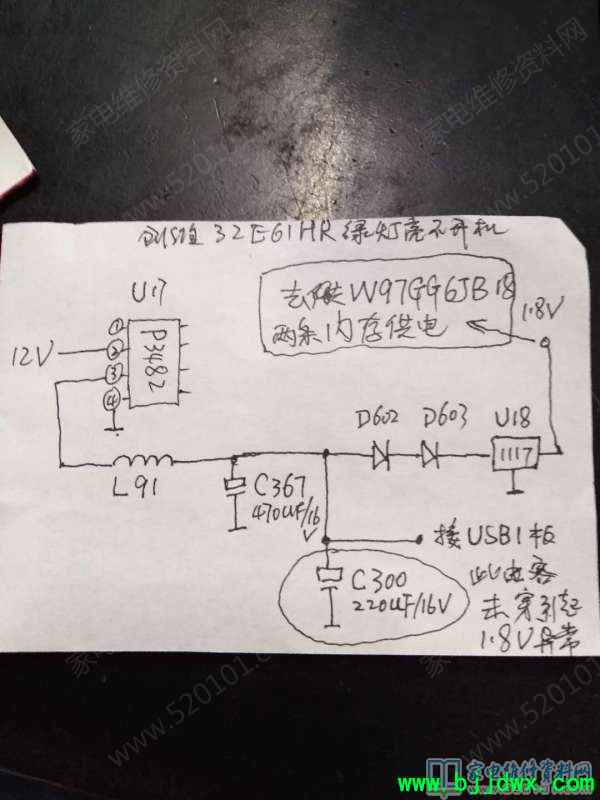 创维32E61HR绿灯亮不开机
U17
去供W97GG6JB18
两条内存供电
1.8V
①
②
③
④
P3482
12V
D602
D603
U18
1117
L91
C367
470UF/16V
接USB1板
C300
220UF/16V
此电容
击穿引起
1.8V异常
家电维修资料网
www.520101.com
家电维修资料网
www.bjjdwx.com